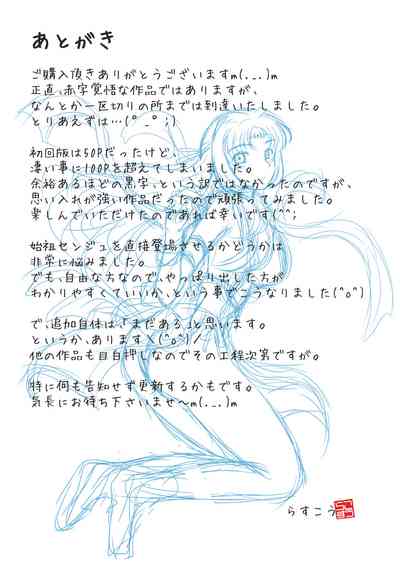 あとがき
ご購入頂きありがとうございますm(._.)m
正直、赤字覚悟な作品ではありますが、
なんとか一区切りの所までは到達いたしました。
とりあえずは…(°_°;)
初回版は50Pだったけど、
凄い事に100Pを超えてしまいました。
余裕あるほどの黒字、という訳ではなかったのですが、
思い入れが強い作品だったので頑張ってみました。
楽しんでいただけたのであれば幸いです(^^;
始祖センジュを直接登場させるかどうかは
非常に悩みました。
でも、自由な方なので、やっぱり出した方が
わかりやすくていいか、という事でこうなりました(^o^)
で、追加自体は、「まだある」と思います。
というか、あります\(^o^)/
他の作品も目白押しなのでその工程次第ですが。
特に何も告知せず更新するかもです。
気長にお待ち下さいませ～m(._.)m
らすこう